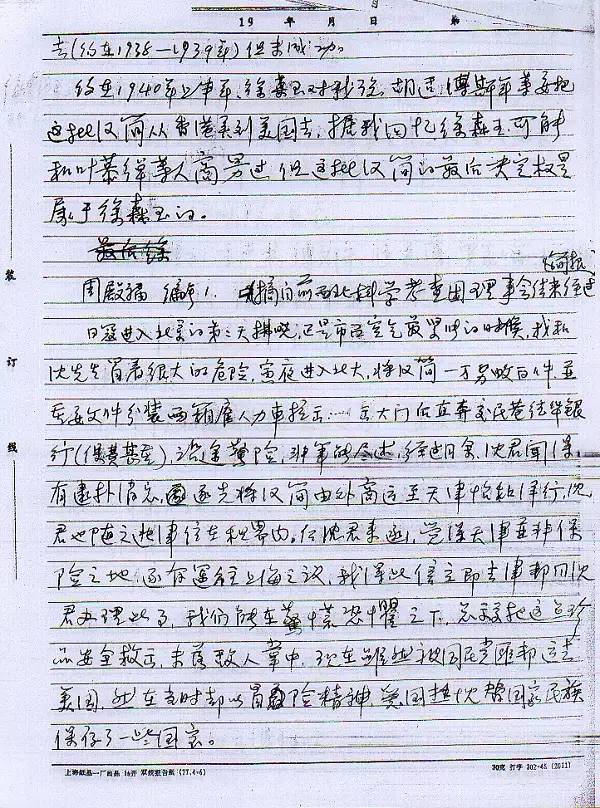 19 年 月 日 第
去(约在1938—1939年)但未成功。
约在1940年上半年,徐森玉对我说,胡适、傅斯年等要把
这批汉简从香港弄到美国去,据我回忆徐森玉可能
和叶恭绰等人商界过,但这批汉简的最后决定权是
属于徐森玉的。
最后徐
周殿福 编号1. 摘自前西北科学考查团理事会结束经过
日寇进入北京的第二天拂晓,正是市面空气最紧张的时候,我和
沈先生冒着很大的危险,夤夜进入北大,将汉简一万另数百件并
重要文件分装两箱雇人力车拉出……出大门后直奔交民巷德华银
行(保费甚重),沿途萬险,非笔能尽述,经过月余,沈君闻
有遭扑消息,遂先将汉简由外商运至天津怡和洋行,沈
君也随之赴津住在租界内。何沈君来函,觉得天津并非保
险之地,遂有运往上海之议,我得此信立即去津帮同沈
君办理此事,我们能在惊慌恐惧之下,总算把这些珍
品安全救出,未落敌人掌中,现在虽然被国民党匪帮运去
美国,然在当时却以冒险精神,爱国热忱帮国家民族
保存了一些国宝。
装
订
线
上海纸品一厂出品 16开 双线报告纸 (77.4-6)
30克 打字 302-45 (2011)